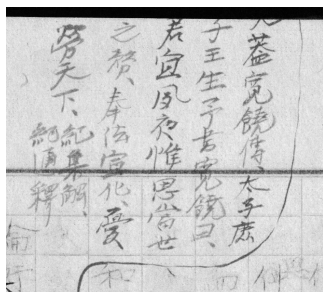 蓋寛饒傳、太子庶
子王生予書寛饒曰、
君宜夙夜惟思當世
之務、奉法宣化、憂
勞天下、紀集解、
釋
和